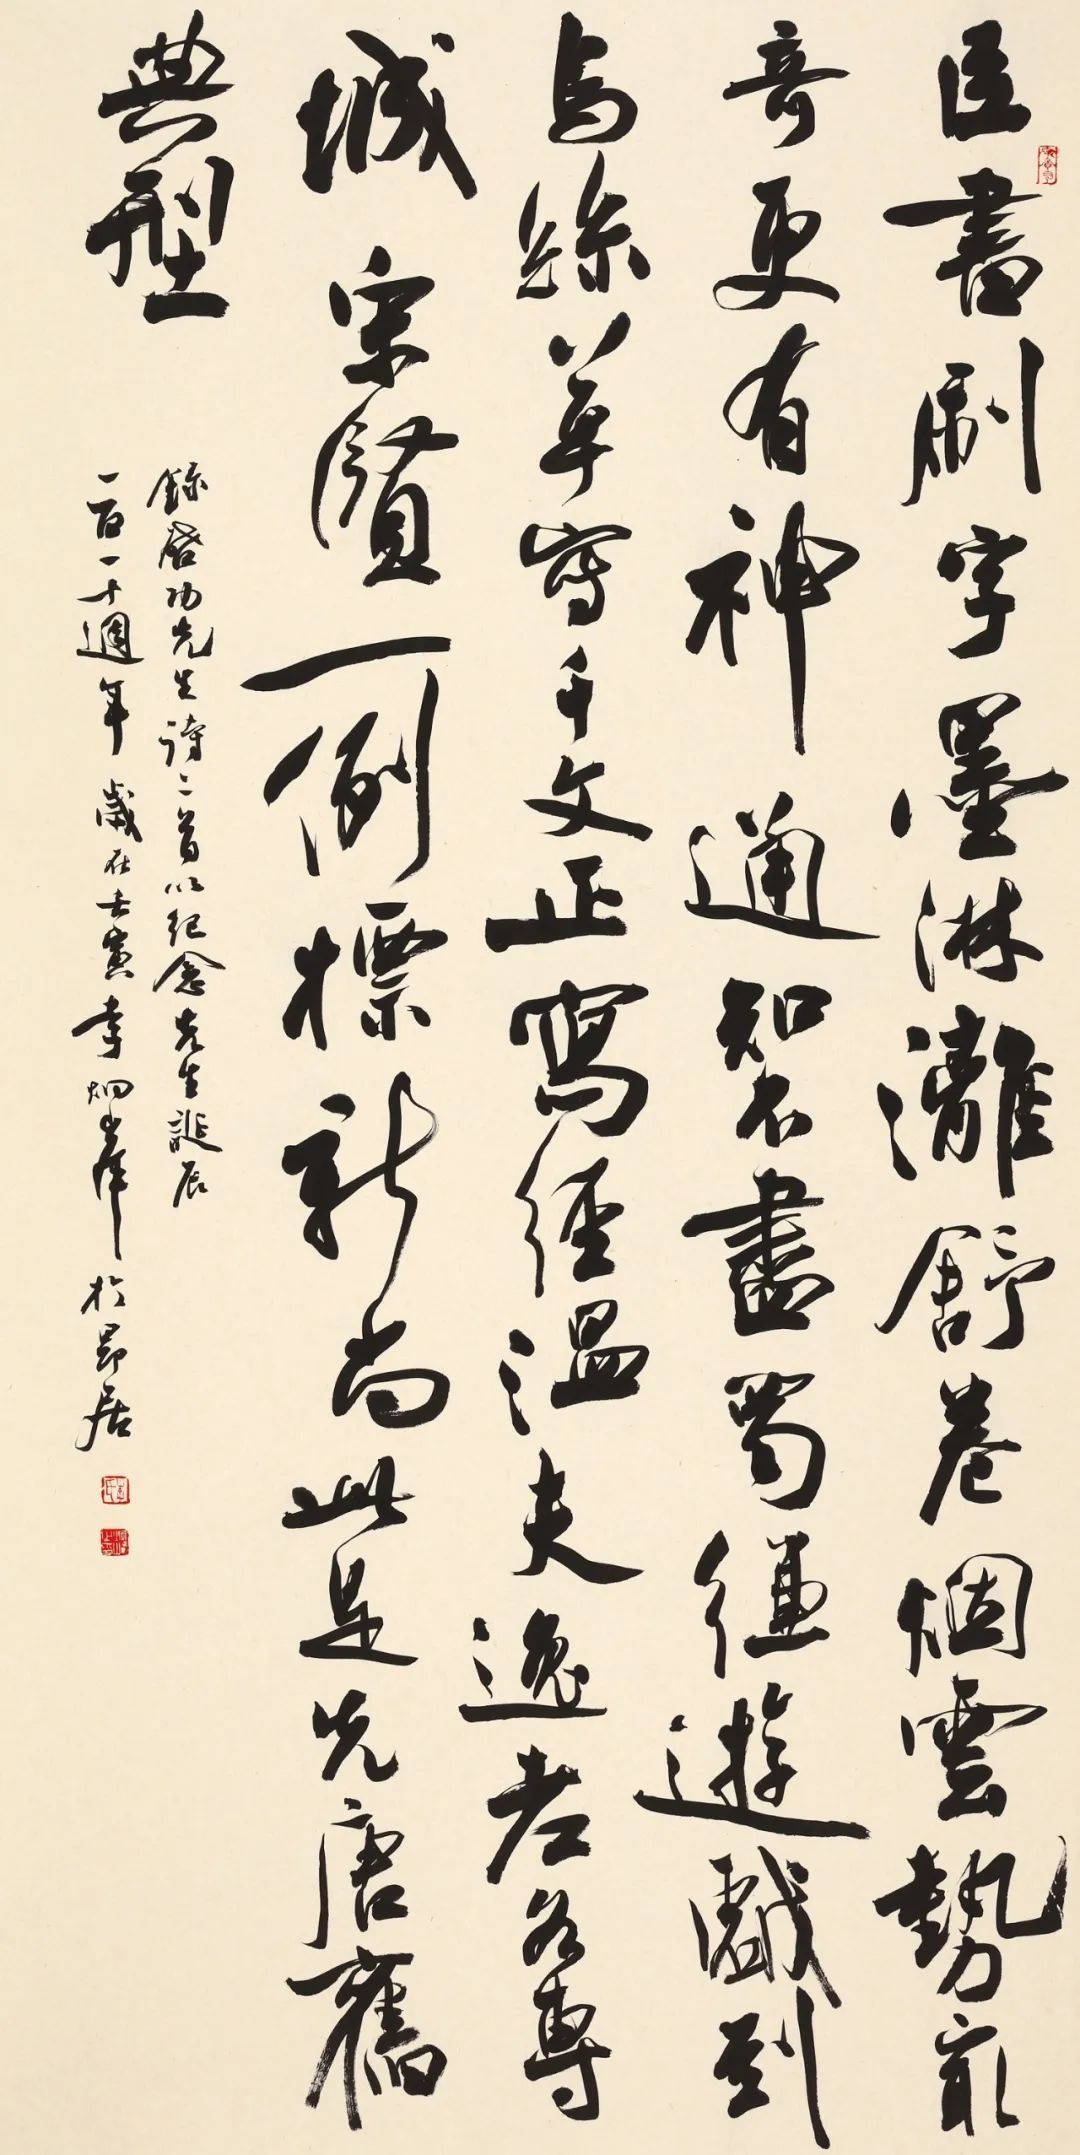 臣書刷字墨淋漓舒卷烟雲勢最
奇更有神通智不盡蜀縑遊戲到
烏絲草寫千文正寫經溫夫逸老各專
城宋賢一例標新尚此是先唐舊
典型
錄啓功先生詩二首以紀念先生誕辰
一百一十週年歲在壬寅李炯峰於昂居